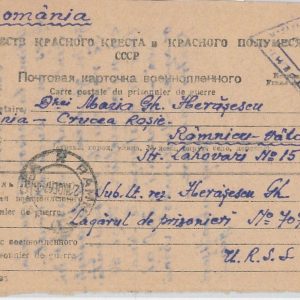 România
ЕСТВ КРАСНОГО КРЕСТА и КРАСНОГО ПОЛУМЕС
СССР
Почтовая карточка военнопленного
Carte postale du prisonnier de guerre
Dnei Maria Gh. Herăşescu
nia - Crucea Roşie.
Râmnicu-Săra
Str. Lahovari No 15
Sub. lt. rez. Herăşescu Gh
de guerre
Lagărul de prizonieri No 70
с военнопленного
de guerre
U. R. S. S